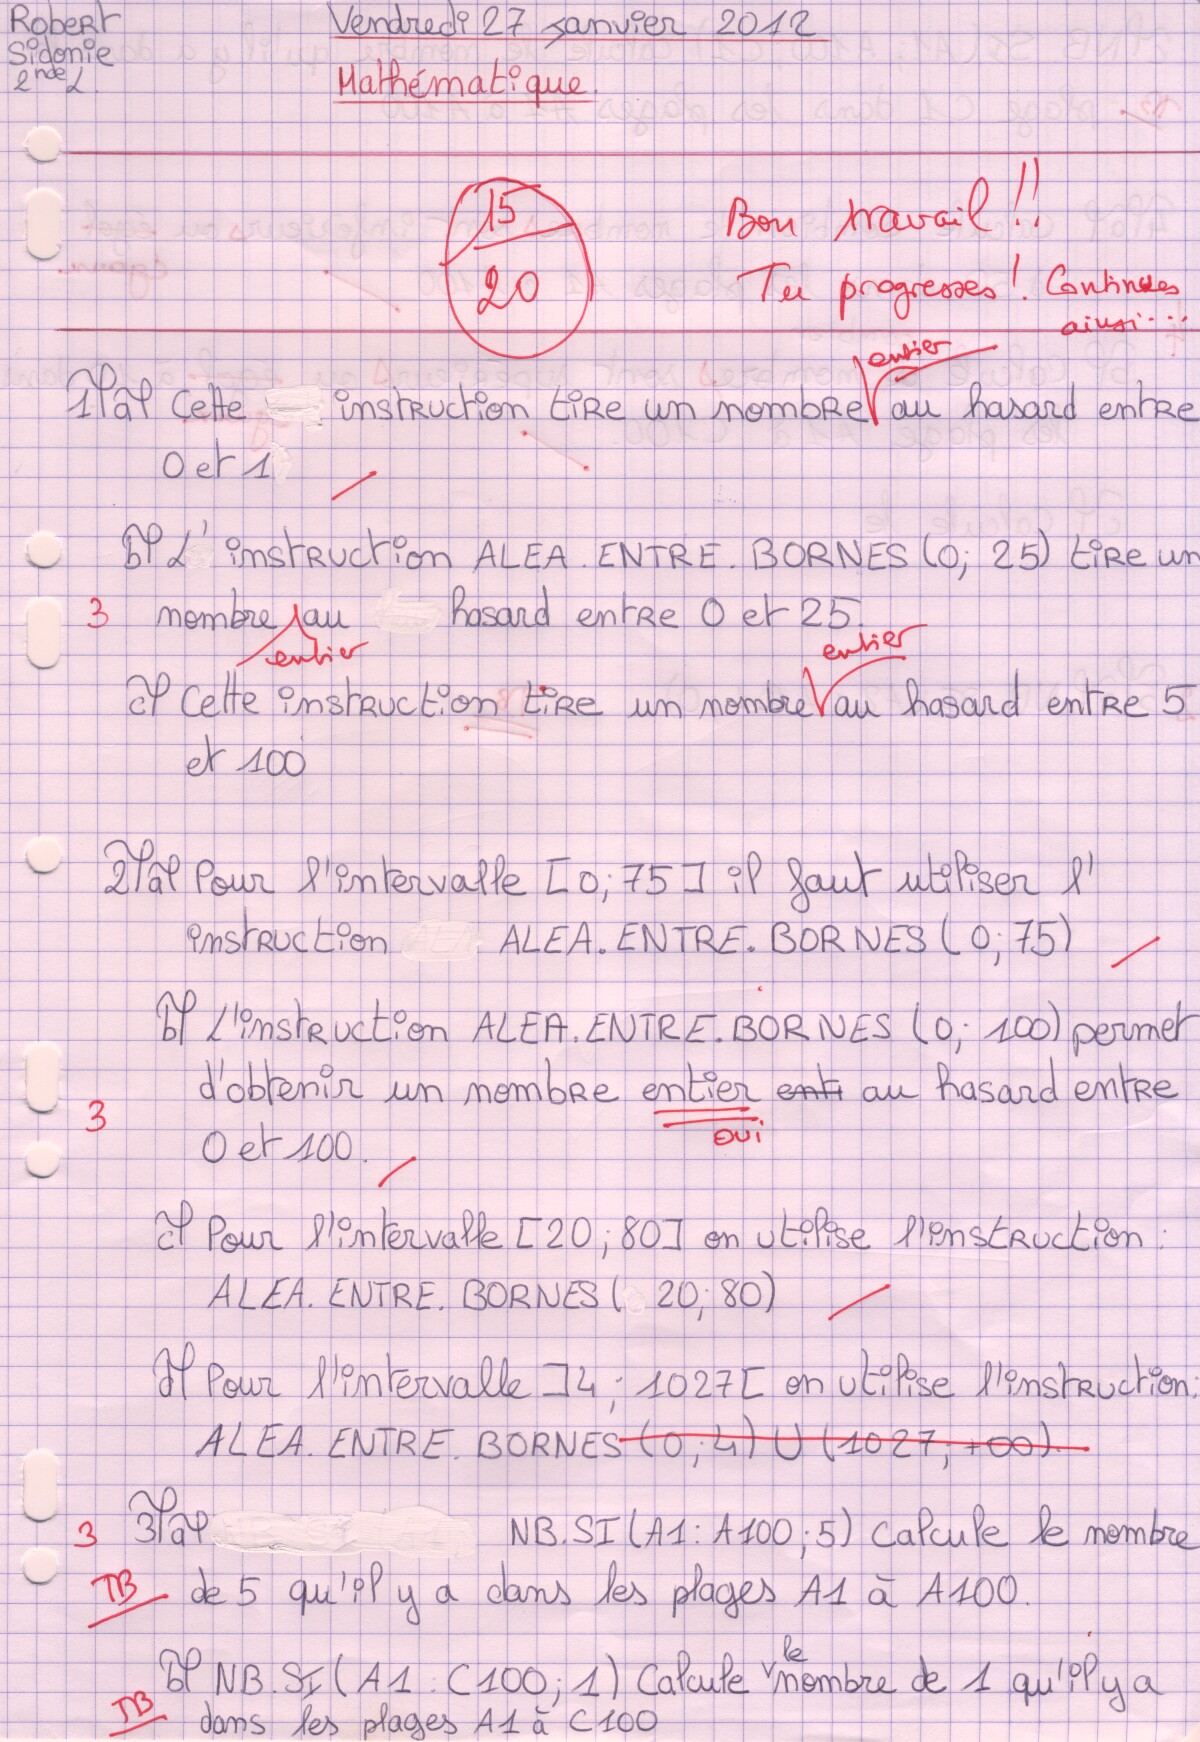 Robert
Sidonie
2nde L.
Vendredi 27 janvier 2012
Mathématique.
15
20
Bon travail !!
Tu progresses ! Continues
ainsi...
entier
1°) a) Cette instruction tire un nombre au hasard entre
0 et 1
b) L'instruction ALEA.ENTRE.BORNES (0; 25) tire un
3
nombre au hasard entre 0 et 25.
entier
entier
c) Cette instruction tire un nombre au hasard entre 5
et 100
2°) a) Pour l'intervalle [0; 75] il faut utiliser l'
instruction ALEA.ENTRE.BORNES (0; 75)
b) L'instruction ALEA.ENTRE.BORNES (0; 100) permet
d'obtenir un nombre entier enti au hasard entre
3
oui
0 et 100.
c) Pour l'intervalle [20; 80] on utilise l'instruction :
ALEA.ENTRE.BORNES ( 20; 80)
d) Pour l'intervalle ]4 ; 1027[ on utilise l'instruction:
ALEA.ENTRE.BORNES (0; 4) U (1027; +∞).
3
3°) a) NB.SI (A1: A100; 5) Calcule le nombre
TB
de 5 qu'il y a dans les plages A1 à A100.
le
b) NB.SI (A1 : C100; 1) Calcule nombre de 1 qu'il y a
TB
dans les plages A1 à C100